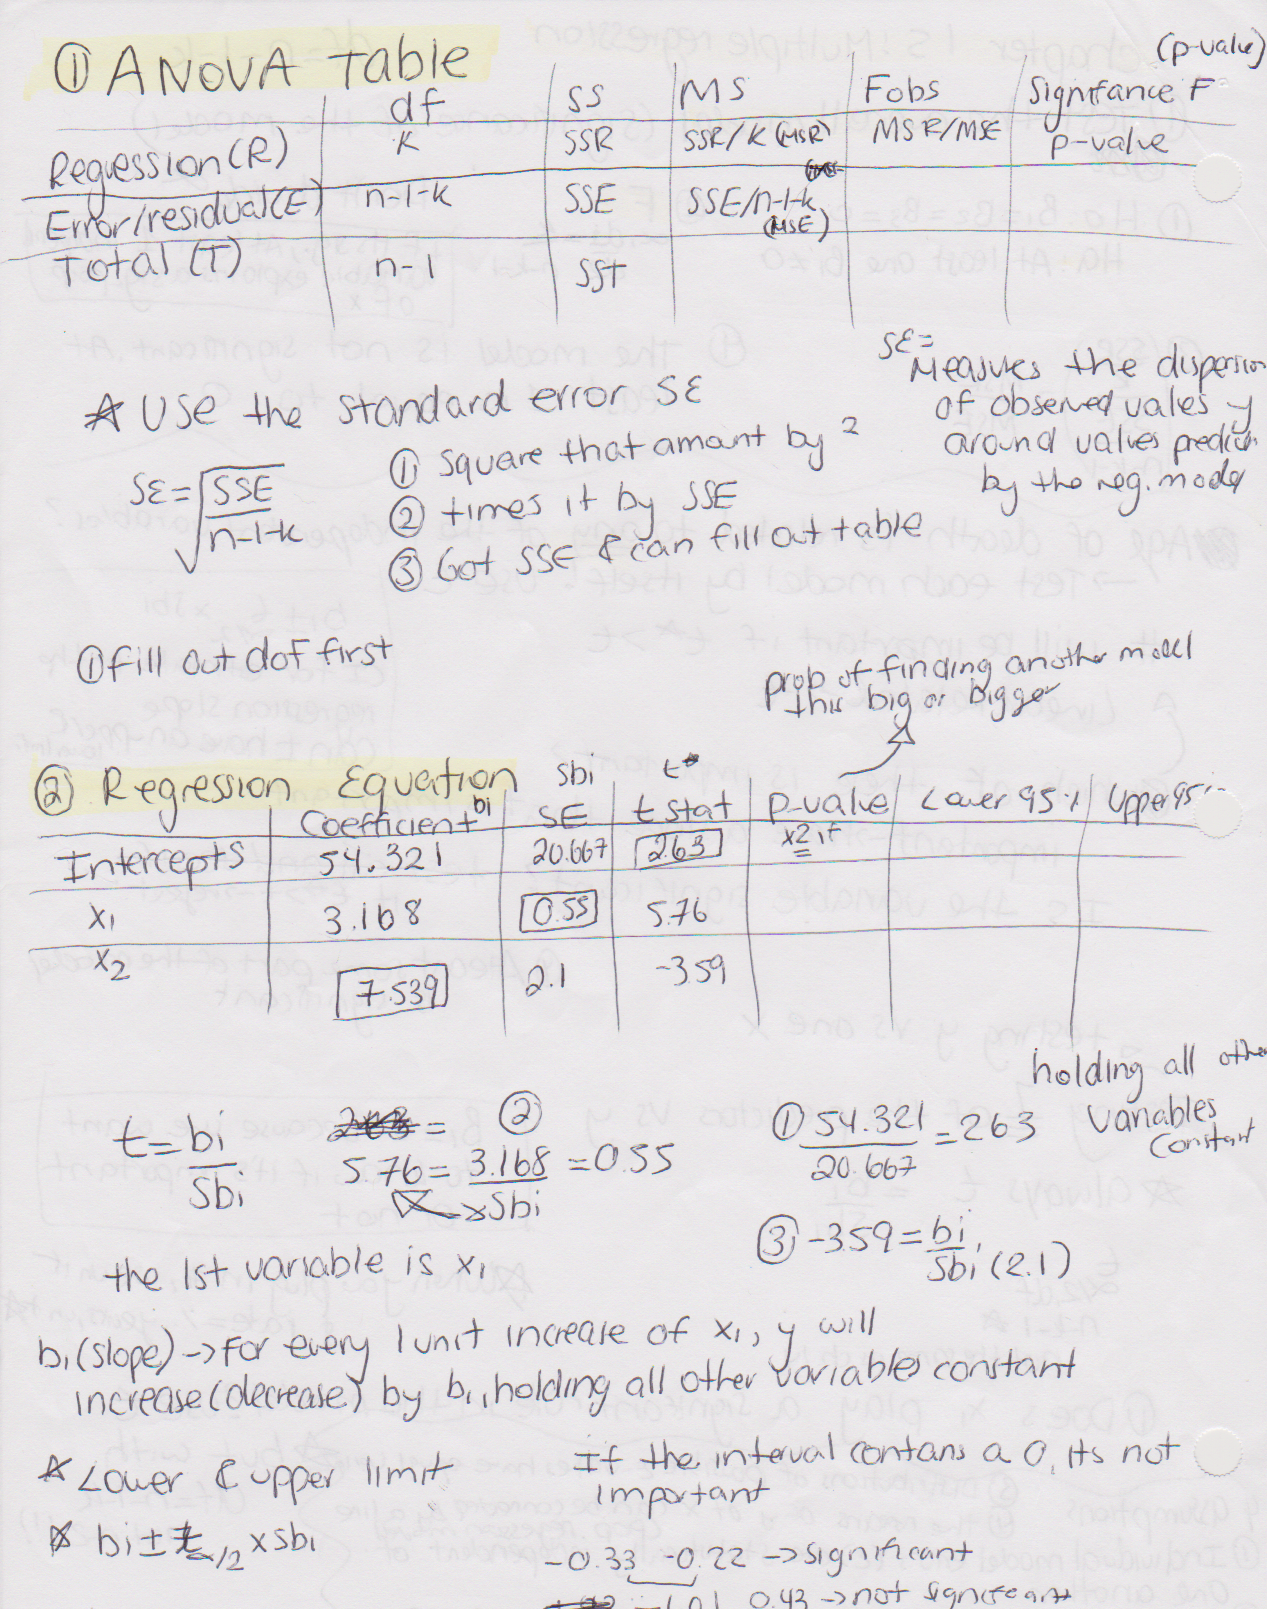 ① ANOVA Table
(p-value)
df SS MS Fobs Signifance F
Regression(R) K SSR SSR/K (MSR) MSR/MSE p-value
Error/residual(E) n-1-k SSE SSE/n-1-k (MSE)
Total (T) n-1 SST
SE=
Measures the dispersion
of observed values y
around values
by the reg. model
☆ Use the standard error SE
SE=√SSE/n-1-k
① Square that amount by 2
② times it by SSE
③ Got SSE & can fill out table
① fill out dof first
prob of finding another model
this big or bigger
② Regression Equation
sbi t*
Coefficient bi SE t stat p-value Lower 95% Upper 95%
x2 if
Intercepts 54.321 20.667 2.63
x1 3.168 0.55 5.76
x2 7.539 2.1 -3.59
holding all other
variables
constant
t=bi/Sbi
②
5.76=3.168/Sbi =0.55
① 54.321/20.667 =263
③ -3.59=bi/Sbi (2.1)
the 1st variable is x1
b1(slope)→for every 1 unit increase of x1, y will
increase(decrease) by b1, holding all other variables constant
☆ Lower & upper limit
If the interval contans a 0, its not
important
☆ bi±tα/2 x sbi
-0.33 -0.22 →significant
-1.01 0.43 →not significant